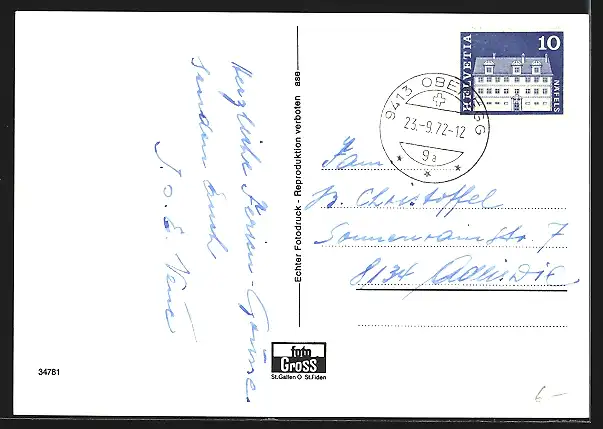 Herzliche Ferien-Grüsse
senden Euch
J. & E.
Echter Fotodruck - Reproduktion verboten ase
HELVETIA
10
NÄFELS
9413 OBEREGG
23.-9.72-12
9a
Fam.
Christoffel
Sonnenrainstr. 7
8134 Adliswil
foto
GROSS
St.Gallen O St.Fiden
34781
6.-